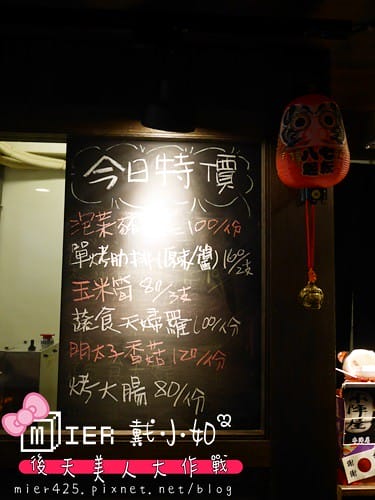 今日特價
泡菜 100/份
單烤肋排(原味/醬) 160/支
玉米筍 80/3支
蔬食天婦羅 100/份
明太子香菇 120/份
烤大腸 80/份
七転
八起
MIER 戴小如
後天美人大作戰
mier425.pixnet.net/blog